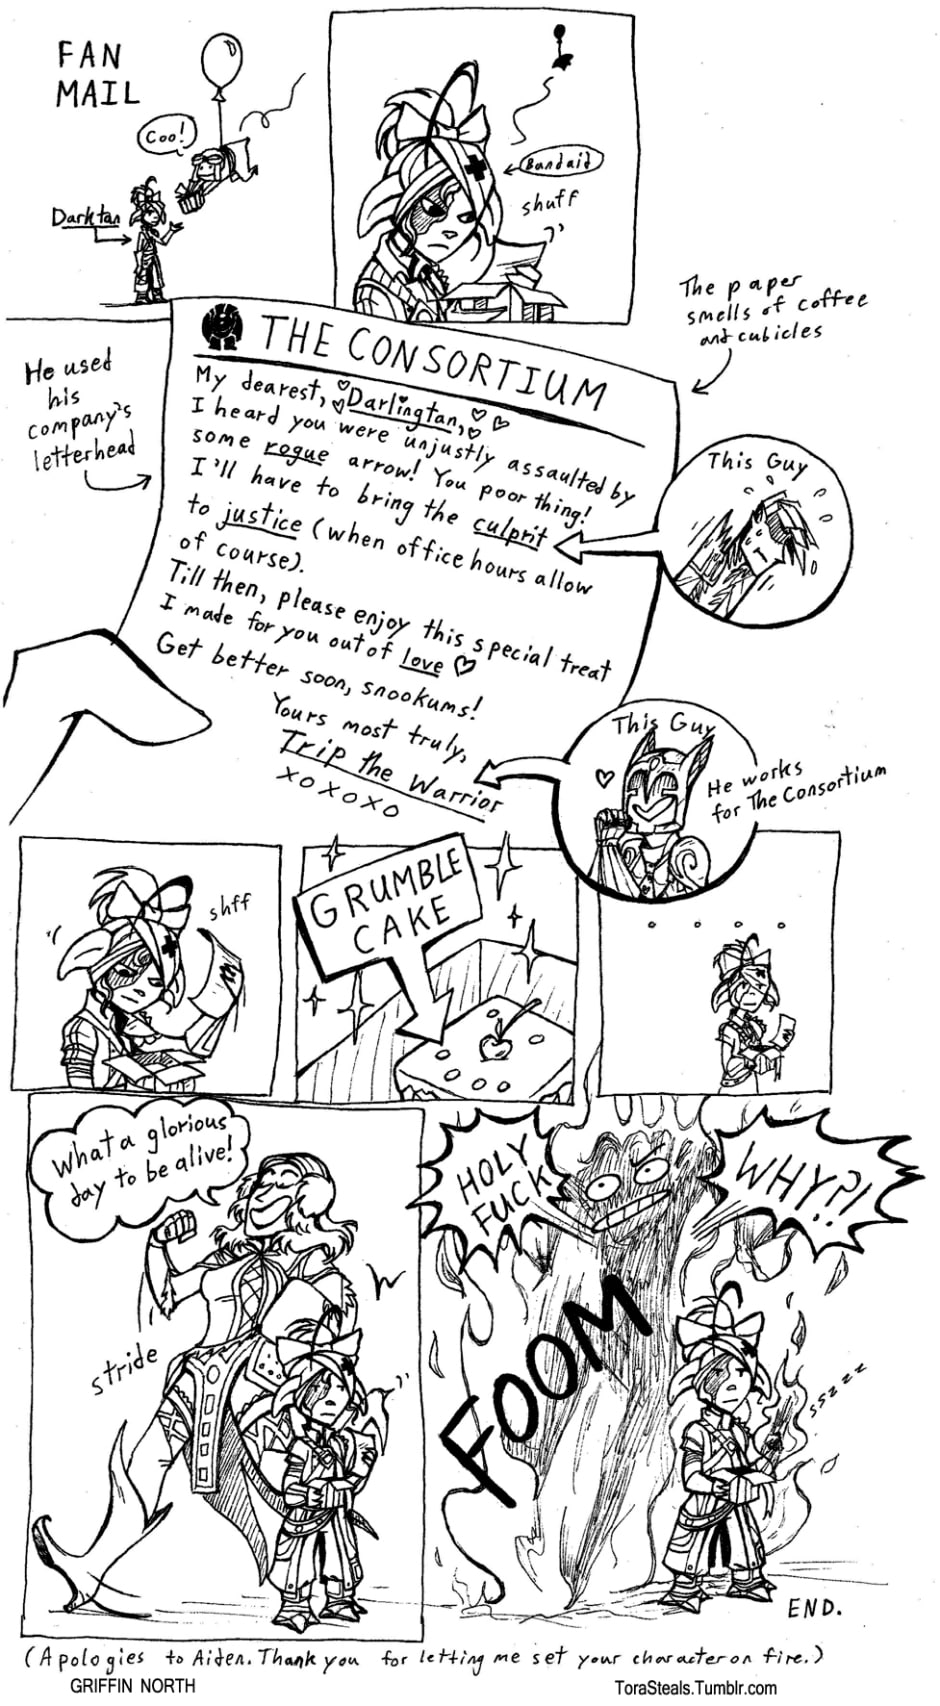 FAN
MAIL
Coo!
Darktan
Bandaid
shuff
The paper
smells of coffee
and cubicles
He used
his
company's
letterhead
THE CONSORTIUM
My dearest, ♡Darlingtan,♡♡
I heard you were unjustly assaulted by
some rogue arrow! You poor thing!
I'll have to bring the culprit
to justice (when office hours allow
of course).
Till then, please enjoy this special treat
I made for you out of love ♡
Get better soon, snookums!
Yours most truly,
Trip the Warrior
xoxoxo
This Guy
This Guy
He works
for The Consortium
shff
GRUMBLE
CAKE
What a glorious
day to be alive!
stride
HOLY
FUCK
WHY?!
FOOM
sszzz
END.
(Apologies to Aiden. Thank you for letting me set your character on fire.)
GRIFFIN NORTH
ToraSteals.Tumblr.com